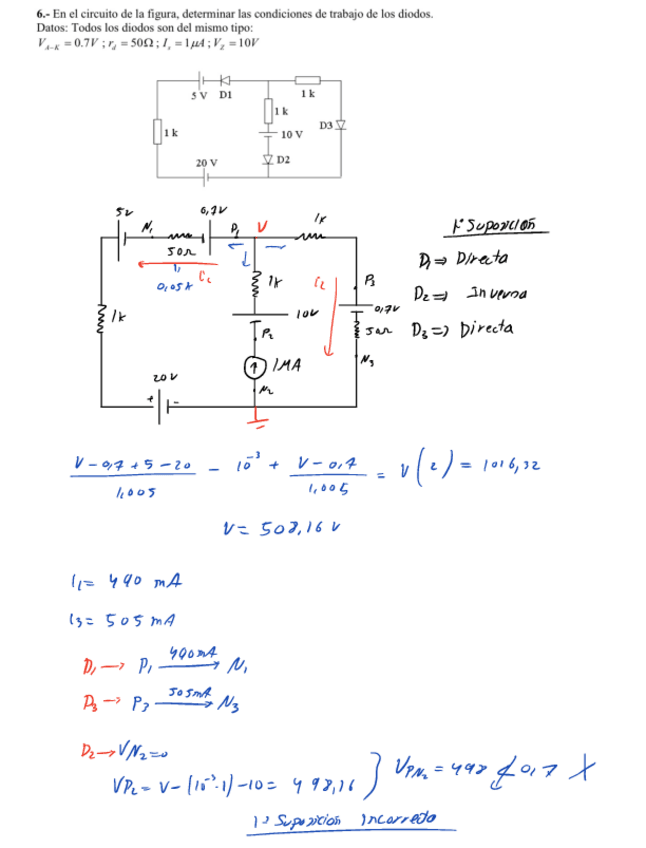 6.- En el circuito de la figura, determinar las condiciones de trabajo de los diodos.
Datos: Todos los diodos son del mismo tipo:
V_{A-K} = 0.7V ; r_d = 50Ω ; I_s = 1μA ; V_Z = 10V
5 V D1
1 k
1 k
D3
10 V
1 k
20 V
D2
5V
0,7V
N1
P1
V
1k
50Ω
I1
0,05A
1k
1k
10V
P3
0,7V
50Ω
N3
P2
1MA
N2
20V
+ -
1ª Suposición
D1 ⇒ Directa
D2 ⇒ Inversa
D3 ⇒ Directa
V - 0,7 + 5 - 20 / 1,005 - 10^{-3} + V - 0,7 / 1,005 = V(2) = 1016,32
V = 508,16 V
I1 = 490 mA
I3 = 505 mA
D1 → P1 490mA → N1
D3 → P3 505mA → N3
D2 → VN2 = 0
VP2 = V - (10^{-3}·1) - 10 = 498,16 } VPN2 = 498 ≮ 0,7 X
1ª Suposición Incorrecta